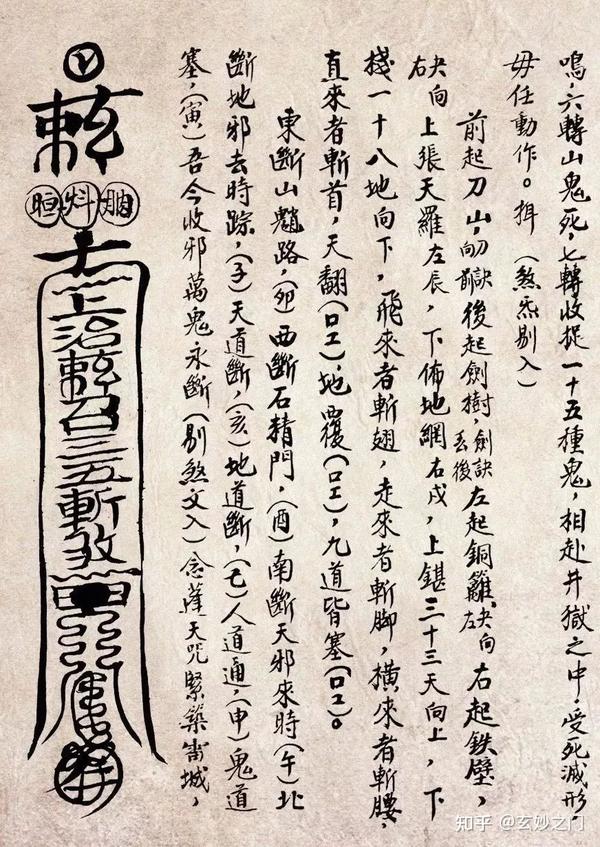 鳴，六轉山鬼死，七轉收捉一十五種鬼，相赴井獄之中，受死滅形，
毋任動作。揖（煞炁剔入）
前起刀山，向前刀訣後起劍樹，劍訣丟後左起銅籬，訣向左右起鉄壁，
訣向右上張天羅左辰，下佈地網右戌，上鎝三十三天向上，下
棧一十八地向下，飛來者斬翅，走來者斬脚，橫來者斬腰，
直來者斬首，天翻（口工）地覆（口工），九道皆塞（口工）。
東斷山魈路，（卯）西斷石精門，（酉）南斷天邪來時（午）北
斷地邪去時踪，（子）天道斷，（亥）地道斷，（巳）人道通，（申）鬼道
塞，（寅）吾今收邪萬鬼永斷（剔煞文入）念蓬天咒緊築甯城，
敕
上治敕召三五斬煞
知乎 @玄妙之门